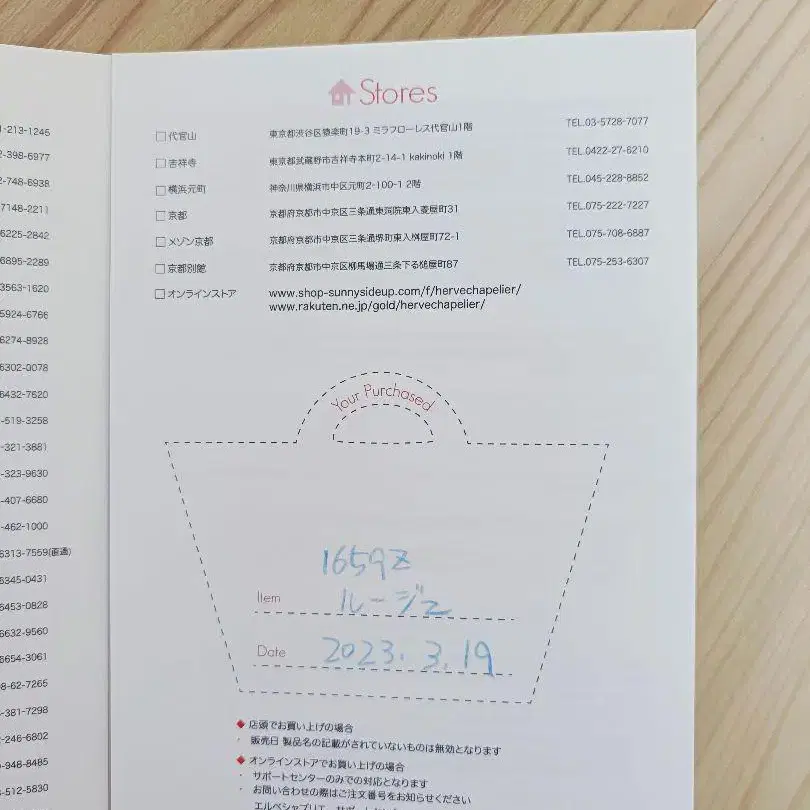 -213-1245
-398-6977
2-748-6938
7148-2211
6225-2842
6895-2289
3563-1620
5924-6766
6274-8928
6302-0078
6432-7620
-519-3258
-321-3881
-323-9630
-407-6680
-462-1000
6313-7559(直通)
6345-0431
6453-0828
6632-9560
8654-3061
8-62-7265
-381-7298
2-246-6802
-948-8485
-512-5830
Stores
代官山 東京都渋谷区猿楽町19-3 ミラフローレス代官山1階 TEL.03-5728-7077
吉祥寺 東京都武蔵野市吉祥寺本町2-14-1 kakinoki 1階 TEL.0422-27-6210
横浜元町 神奈川県横浜市中区元町2-100-1 2階 TEL.045-228-8852
京都 京都府京都市中京区三条通東洞院東入菱屋町31 TEL.075-222-7227
メゾン京都 京都府京都市中京区三条通堺町東入桝屋町72-1 TEL.075-708-6887
京都別館 京都府京都市中京区柳馬場通三条下る槌屋町87 TEL.075-253-6307
オンラインストア www.shop-sunnysideup.com/f/hervechapelier/
www.rakuten.ne.jp/gold/hervechapelier/
Your Purchased
1659Z
Item ルージュ
Date 2023.3.19
◆ 店頭でお買い上げの場合
・ 販売日 製品名の記載がされていないものは無効となります
◆ オンラインストアでお買い上げの場合
・ サポートセンターのみでの対応となります
・ お問い合わせの際はご注文番号をお知らせください
エルベシャプリエ